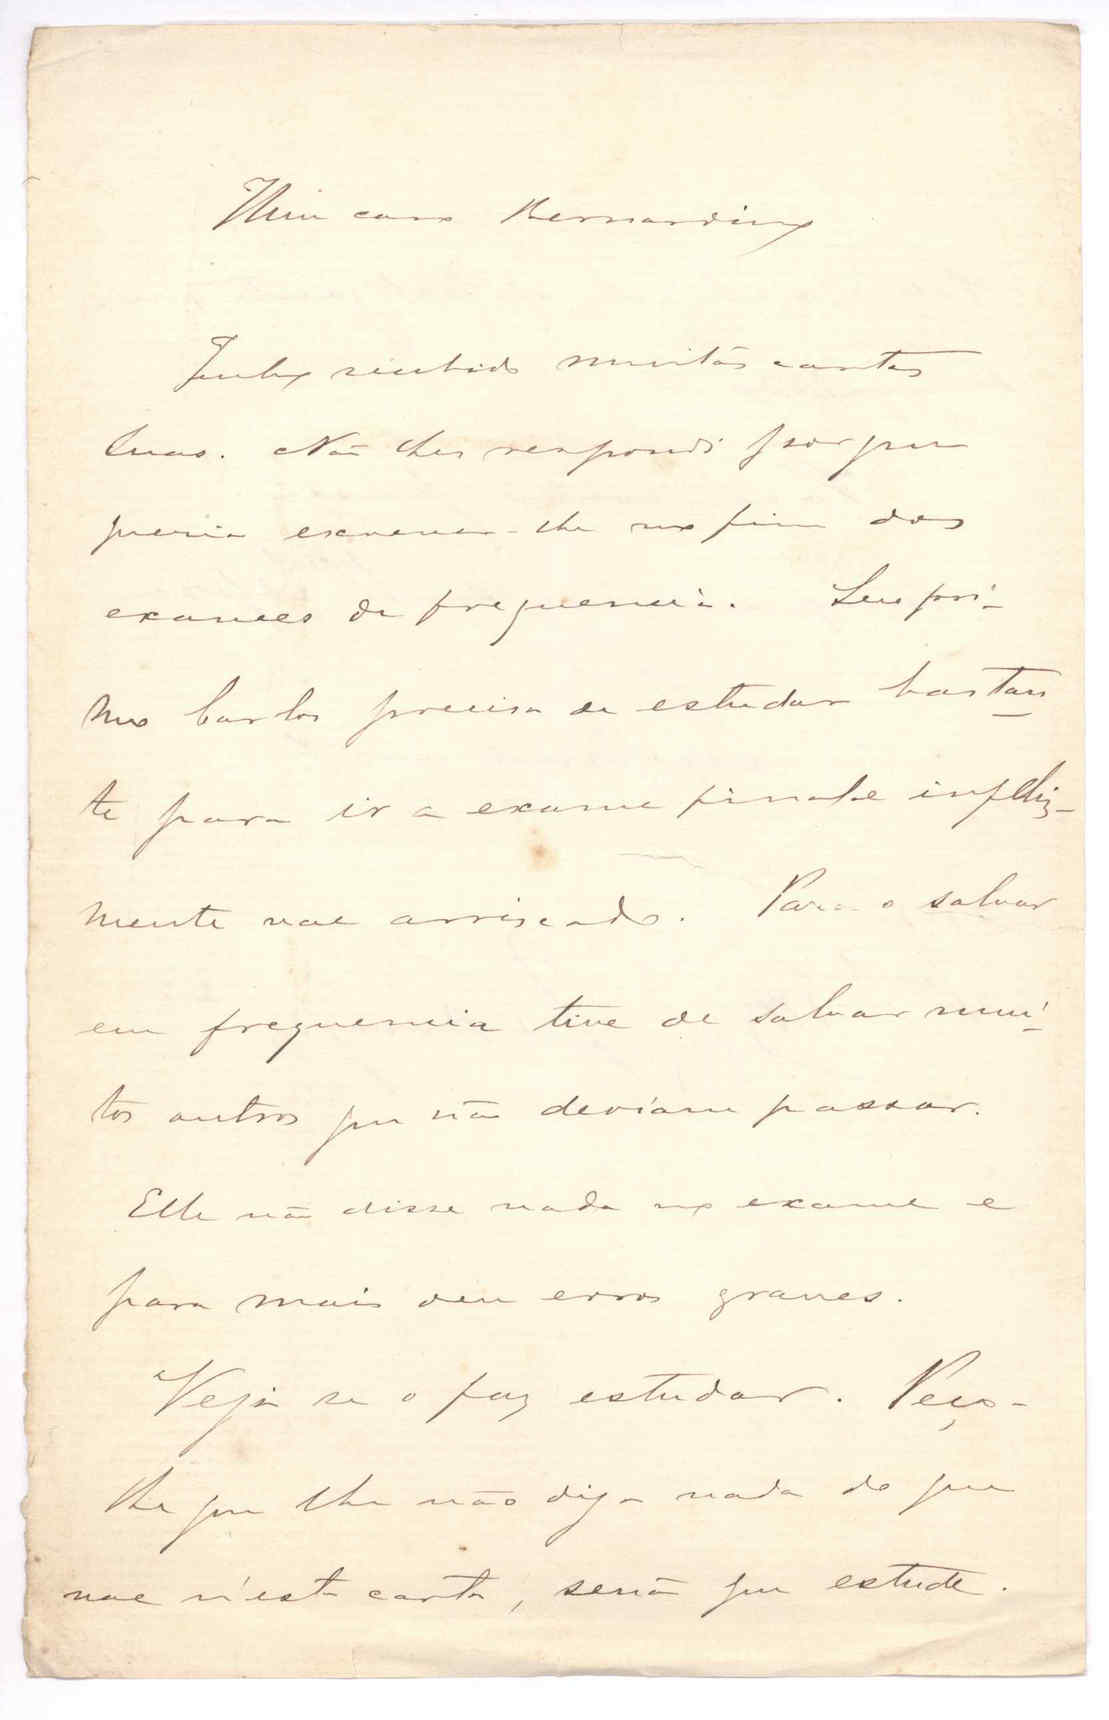 Meu caro Bernardino
Tenho recebido muitas cartas
suas. Não lhes respondi porque
queria escrever-lhe no fim dos
exames de frequencia. Seu pri-
mo Carlos precisa de estudar bastan
te para ir a exame final e infeliz-
mente vae arriscado. Para o salvar
em frequencia tive de salvar mui-
tos outros que não deviam passar.
Elle não disse nada no exame e
para mais deu erros graves.
Veja se o faz estudar. Peço-
lhe que lhe não diga nada do que
vae n'esta carta, senão que estude.